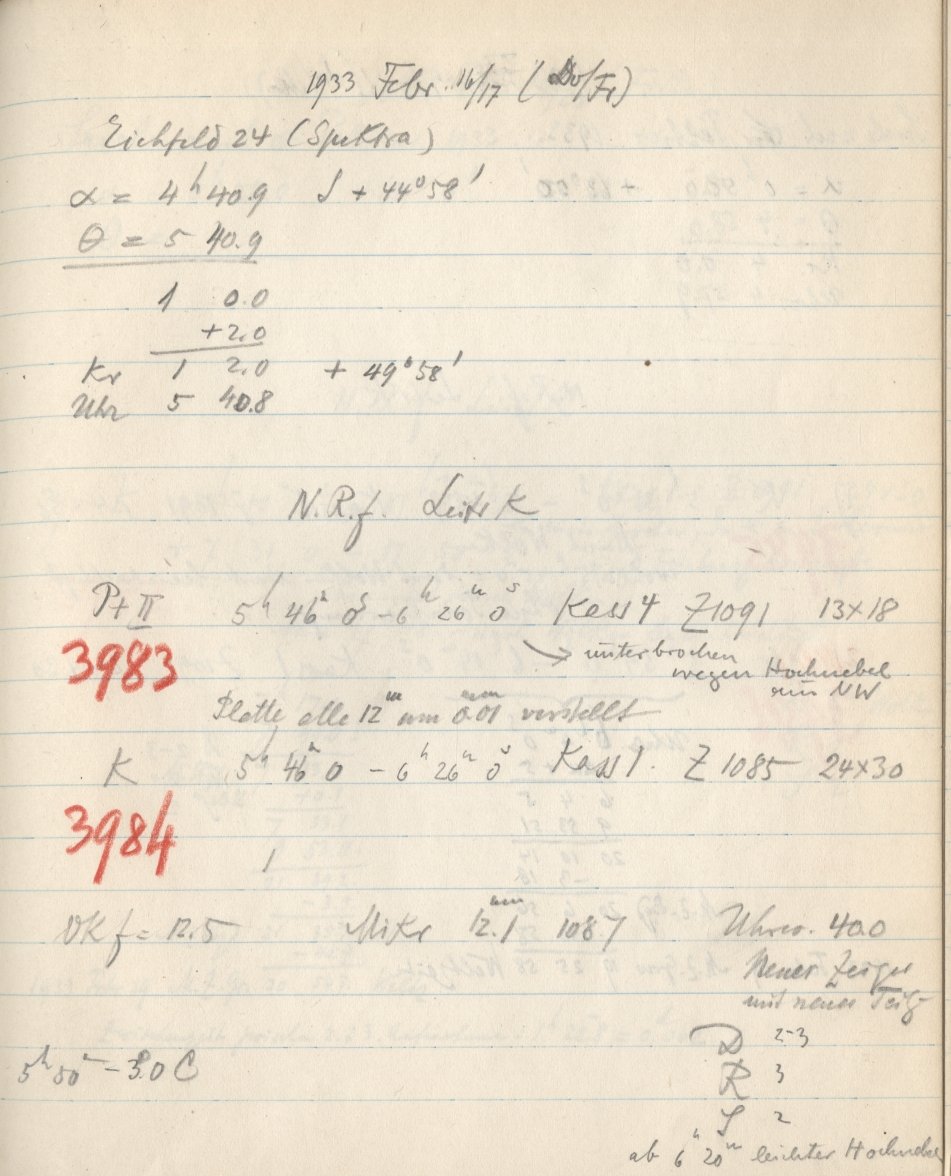 1933 Febr. 16/17 (Do/Fr)
Eichfeld 24 (Spektra)
α = 4ʰ 40.9 δ + 44°58'
θ = 5 40.9
1 0.0
+2.0
Kr 1 2.0 + 49°58'
Uhr 5 40.8
N.R.f. Leitr K
P+II 5ʰ 46ᵐ 0ˢ - 6ʰ 26ᵐ 0ˢ Kass 4 Z1091 13×18
3983 → unterbrochen
wegen Hochnebel
aus NW
Platte alle 12ᵐ um 0.01ᵐᵐ verstellt
K 5ʰ 46ᵐ 0 - 6ʰ 26ᵐ 0ˢ Kass 1. Z 1085 24×30
3984
1
OK f = 12.5 Mikr 12.1ᵐᵐ 108.7 Uhrw. 40.0
Neuer Zeiger
mit neuer Teilg
D 2-3
5ʰ 50ᵐ -3.0 C
R 3
S 2
ab 6ʰ 20ᵐ leichter Hochnebel